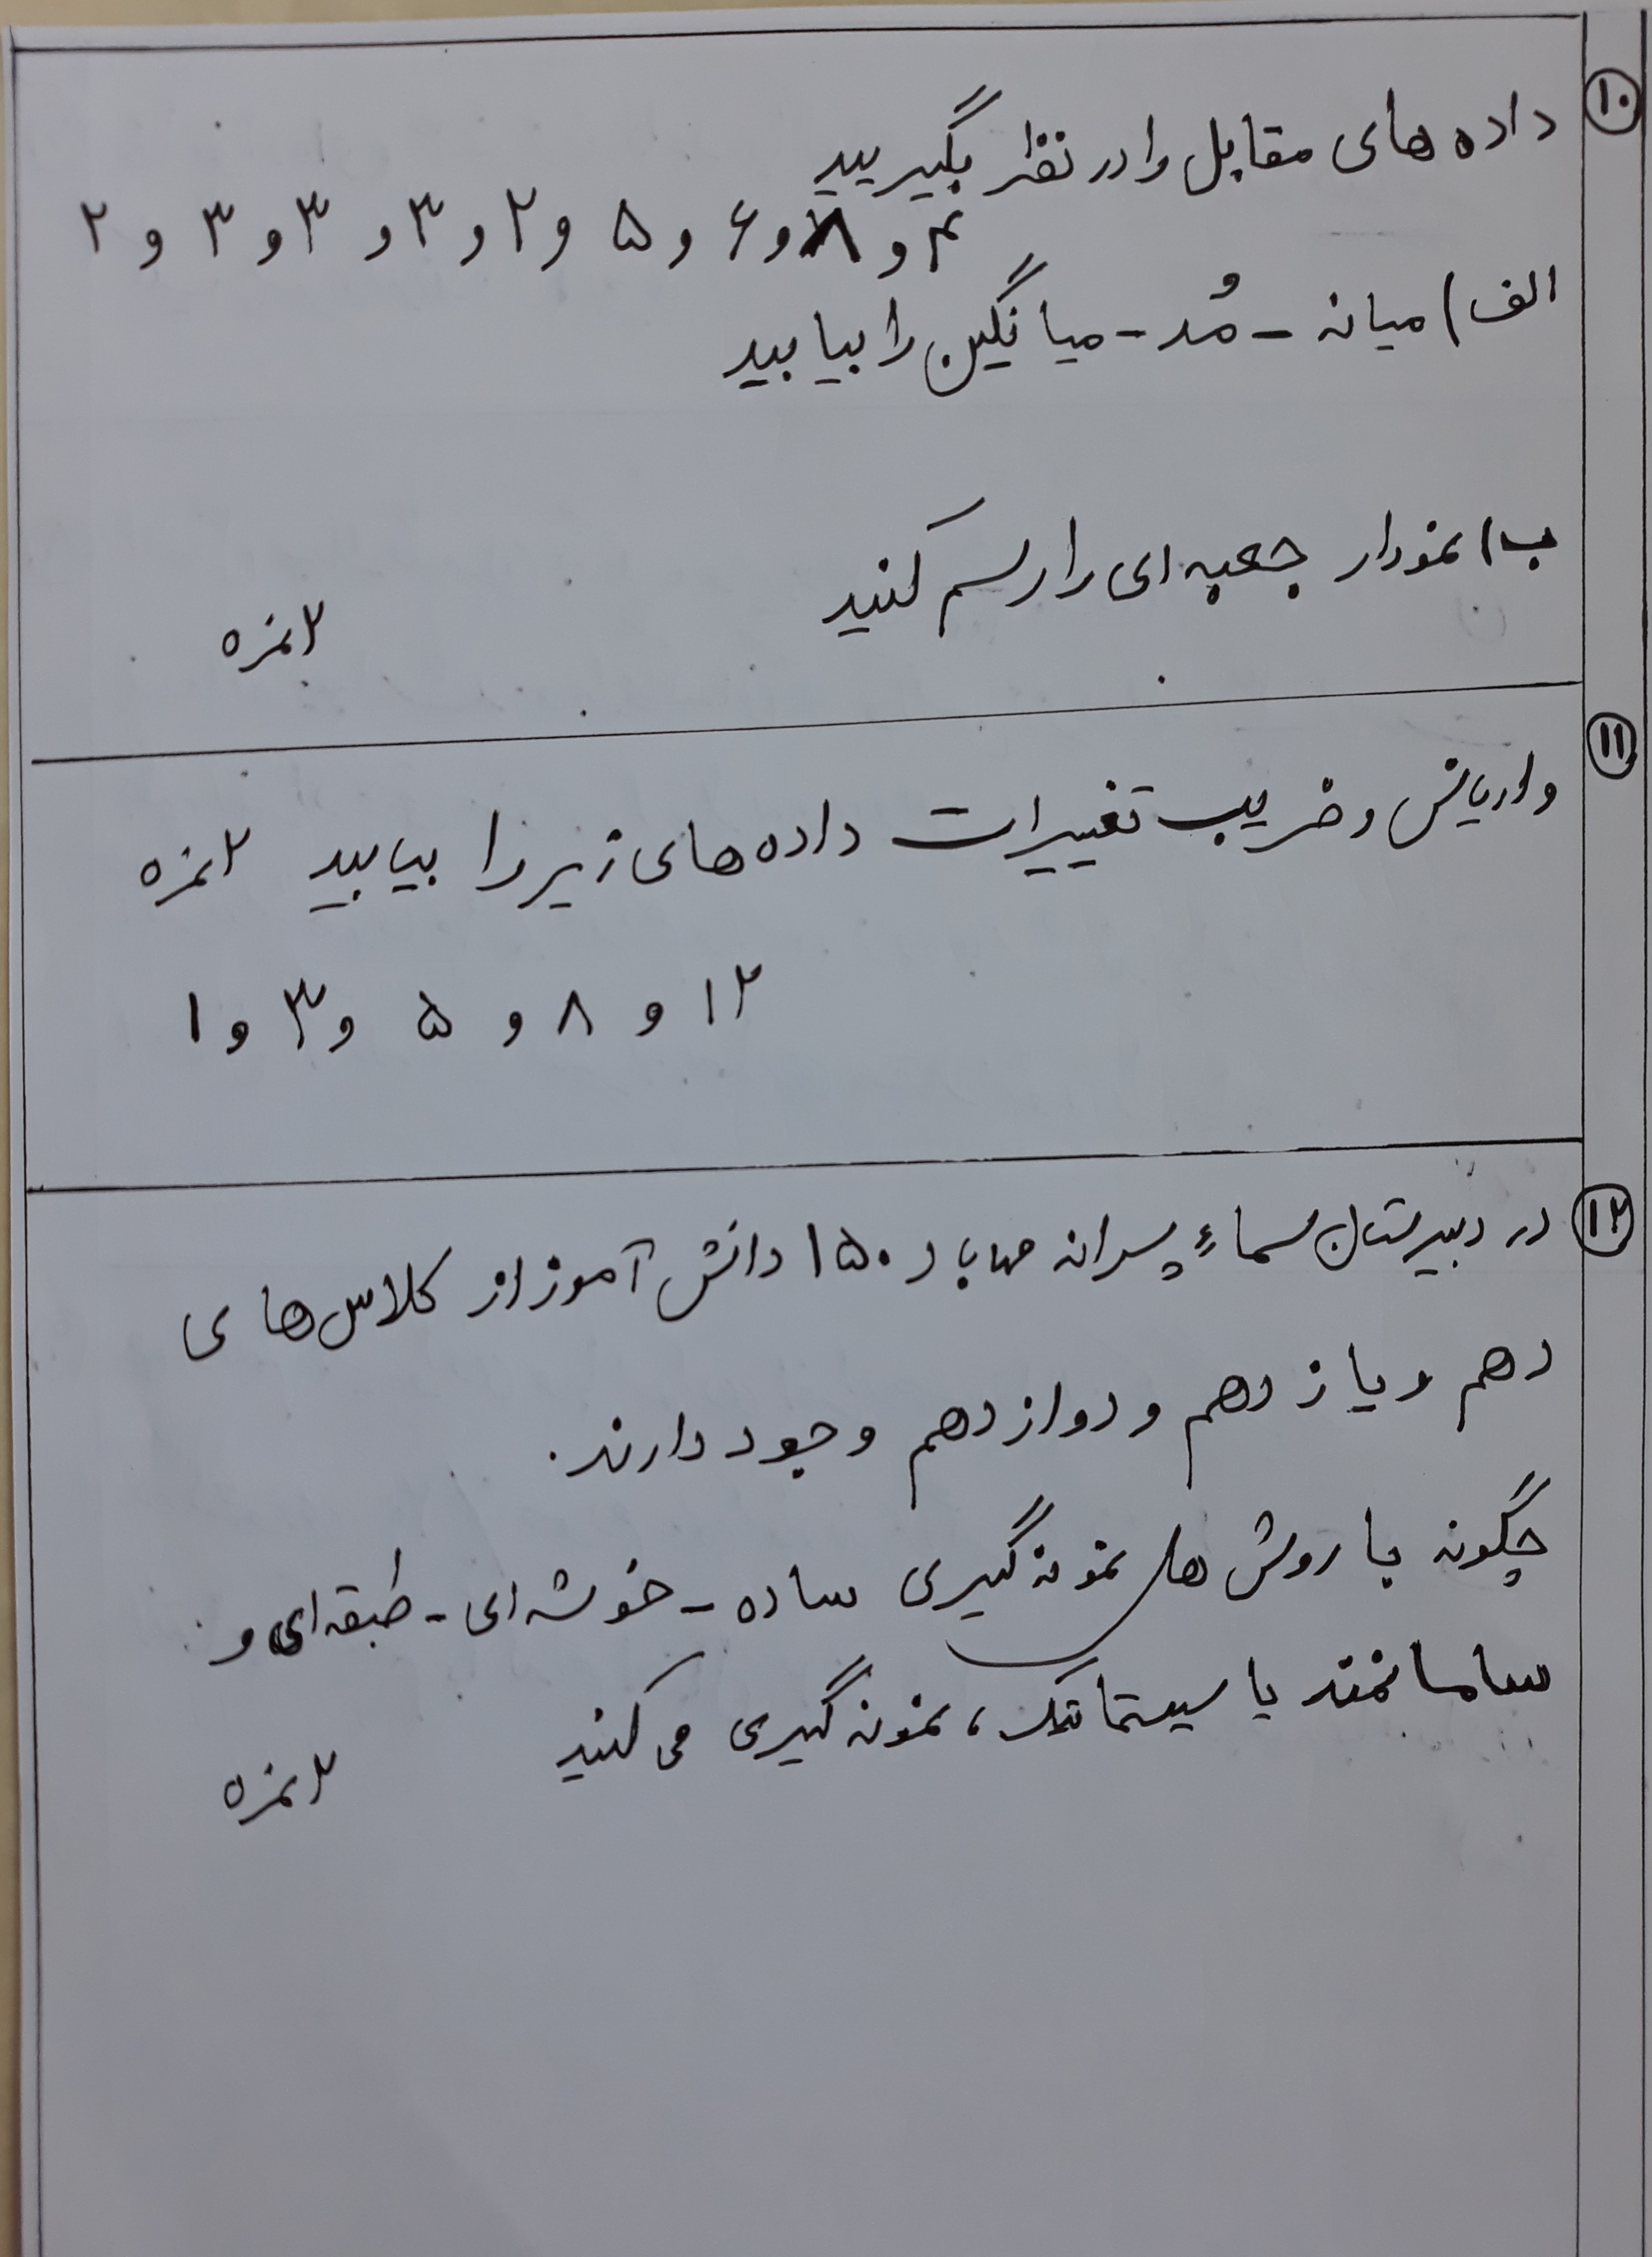 ۱۰
داده های مقابل را در نظر بگیرید
۲ و ۳ و ۳ و ۳ و ۲ و ۵ و ۶ و ۸ و ۴
الف) میانه - مُد - میانگین را بیابید
ب) نمودار جعبه ای را رسم کنید
۲ نمره
۱۱
واریانس و ضریب تغییرات داده های زیر را بیابید ۲ نمره
۱ و ۳ و ۵ و ۸ و ۱۲
۱۲
در دبیرستان سماء پسرانه مهاباد ۱۵۰ دانش آموز از کلاس های
دهم و یازدهم و دوازدهم وجود دارند.
چگونه با روش های نمونه گیری ساده - خوشه ای - طبقه ای و
سامانمند یا سیستماتیک، نمونه گیری می کنید
۲ نمره